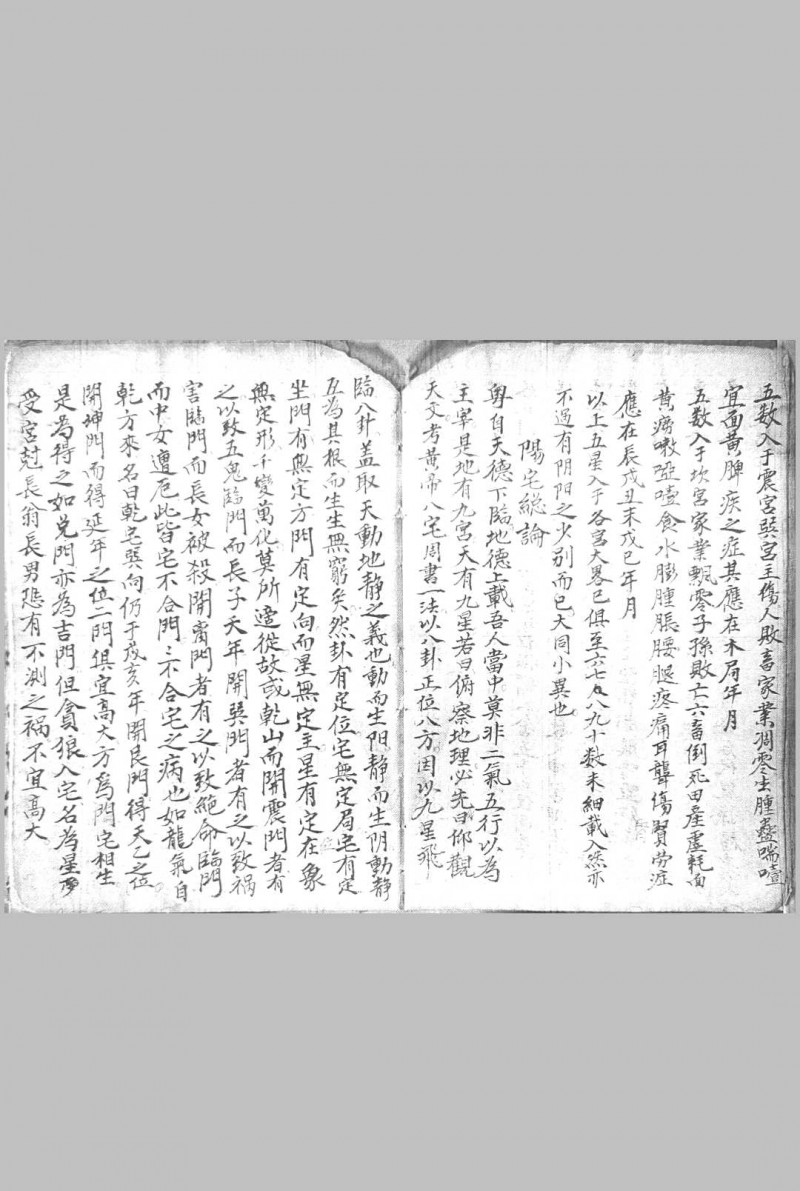 五数入于震宮巽宮主傷人敗畜家業凋零生腫蠱喘噎
宜面黃脾疾之症其應在木局年月
五数入于坎宮家業飄零子孫敗亡六畜倒死田産虛耗面
黄病嗽啞噎食水膨腫脹腰腿疼痛耳聾傷腎劳症
應在辰戌丑未戊巳年月
以上五星入于各宮大畧已俱至六七八九十数未細載入然亦
不過有阴阳之少別而已大同小異也
陽宅総論
粤自天德下臨地德上載吾人當中莫非二氣五行以為
主宰是地有九宮天有九星若曰俯察地理必先曰仰觀
天文考黄帝八宅周書一法以八卦正位八方因以九星飛
臨八卦盖取天動地静之義也動而生阳静而生阴動静
互為其根而生生無窮矣然卦有定位宅無定局宅有定
坐門有無定方門有定向而星無定主星有定在象
無定形千變萬化莫所適從故或乾山而開震門者有
之以致五鬼臨門而長子夭年開巽門者有之以致禍
害臨門而長女被殺開离門者有之以致絶命臨門
而中女遭厄此皆宅不合門門不合宅之病也如龍氣自
乾方來名曰乾宅巽向仍于戌亥年開艮門得天乙之位
開坤門而得延年之位二門俱宜高大方爲門宅相生
是為得之如兑門亦為吉門但貪狼入宅名為星
受宮尅長翁長男恐有不測之禍不宜高大